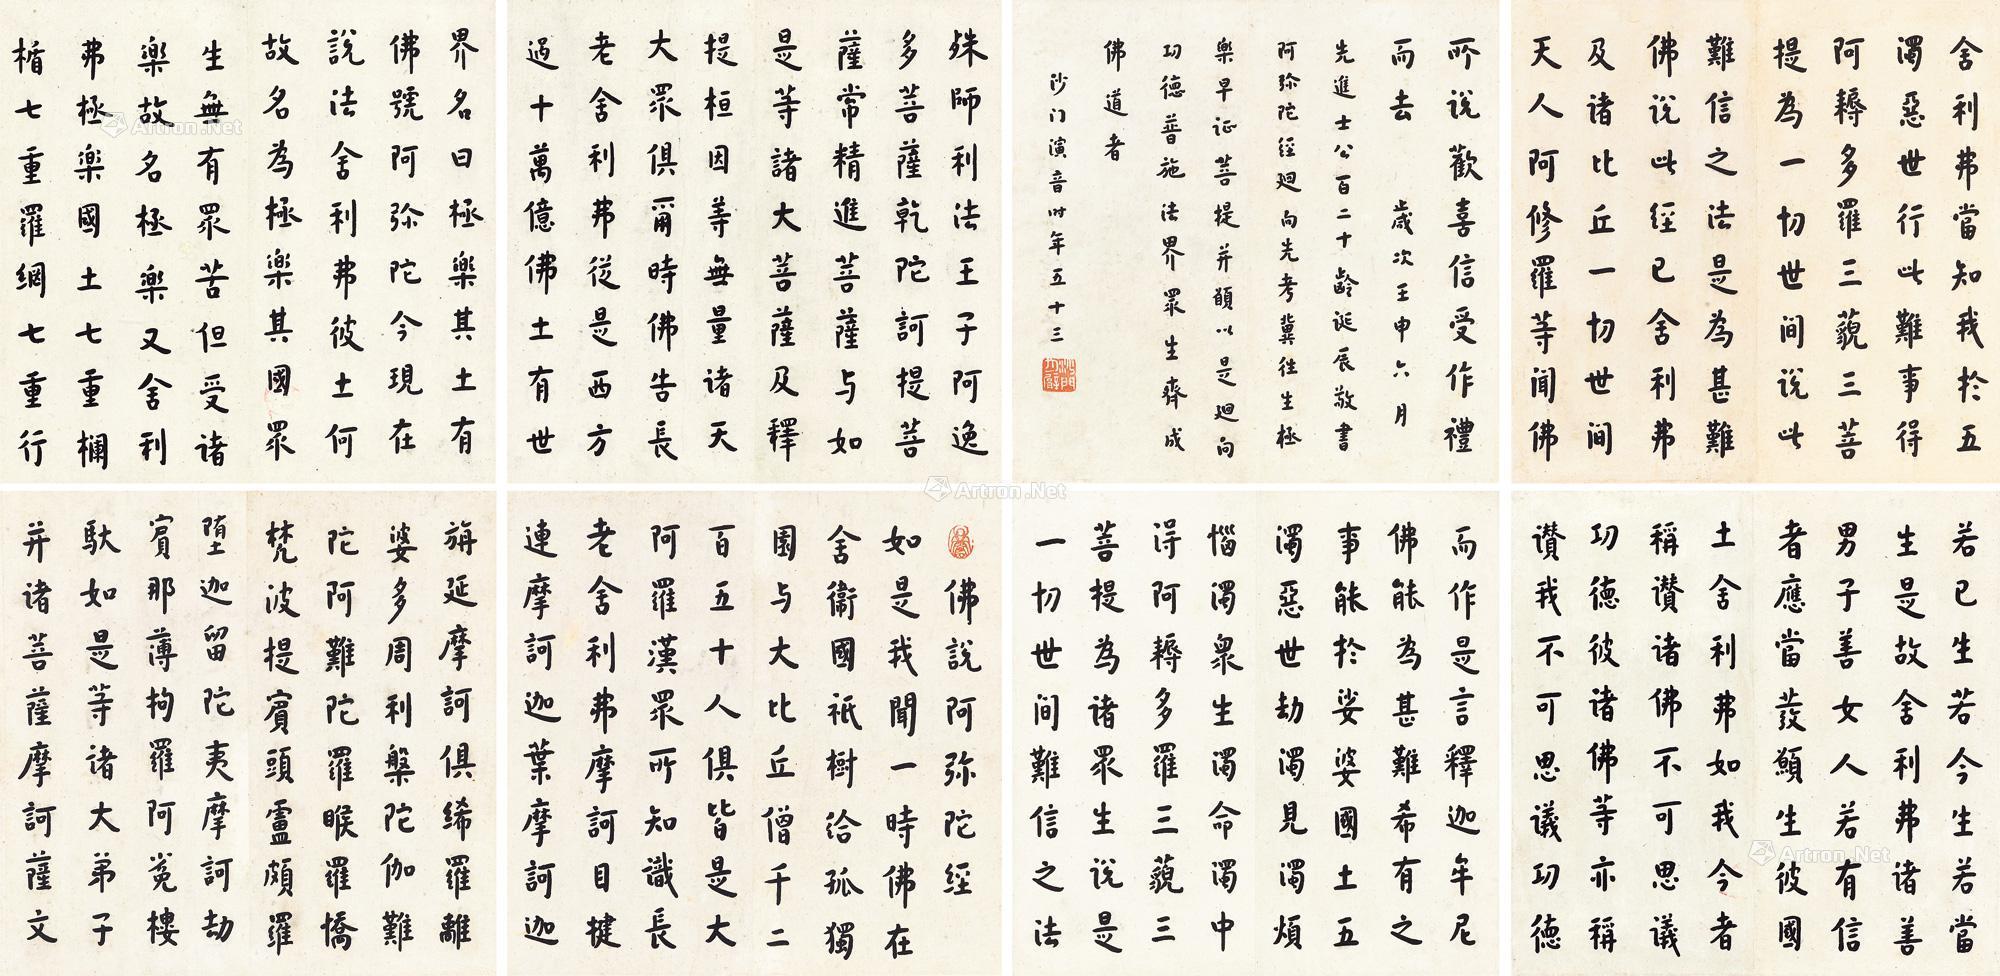 佛說阿弥陀经
如是我聞一時佛在
舍衛國祇樹给孤獨
園与大比丘僧千二
百五十人俱皆是大
阿羅漢眾所知識長
老舍利弗摩訶目犍
連摩訶迦葉摩訶迦
旃延摩訶俱絺羅離
婆多周利槃陀伽難
陀阿難陀羅睺羅憍
梵波提賓頭盧頗羅
堕迦留陀夷摩訶劫
賓那薄拘羅阿㝹樓
馱如是等诸大弟子
并诸菩薩摩訶薩文
殊師利法王子阿逸
多菩薩乾陀訶提菩
薩常精進菩薩与如
是等諸大菩薩及釋
提桓因等無量诸天
大眾俱爾時佛告長
老舍利弗從是西方
過十萬億佛土有世
界名曰極樂其土有
佛號阿弥陀今現在
說法舍利弗彼土何
故名為極樂其國眾
生無有眾苦但受诸
樂故名極樂又舍利
弗極樂國土七重欄
楯七重羅網七重行
若已生若今生若當
生是故舍利弗诸善
男子善女人若有信
者應當發願生彼國
土舍利弗如我今者
稱讃诸佛不可思議
功德彼诸佛等亦稱
讃我不可思議功德
而作是言釋迦牟尼
佛能為甚難希有之
事能於娑婆國土五
濁惡世劫濁見濁煩
惱濁眾生濁命濁中
得阿耨多羅三藐三
菩提為诸眾生说是
一切世间難信之法
舍利弗當知我於五
濁惡世行此難事得
阿耨多羅三藐三菩
提為一切世间说此
難信之法是為甚難
佛说此经已舍利弗
及诸比丘一切世间
天人阿修羅等闻佛
所说歡喜信受作禮
而去 歲次壬申六月
先進士公百二十齡诞辰敬書
阿弥陀经廻向先考冀往生極
樂早证菩提并願以是廻向
功德普施法界眾生齊成
佛道者
沙门演音时年五十三
Artron.Net
Artron.Net
Artron.Net